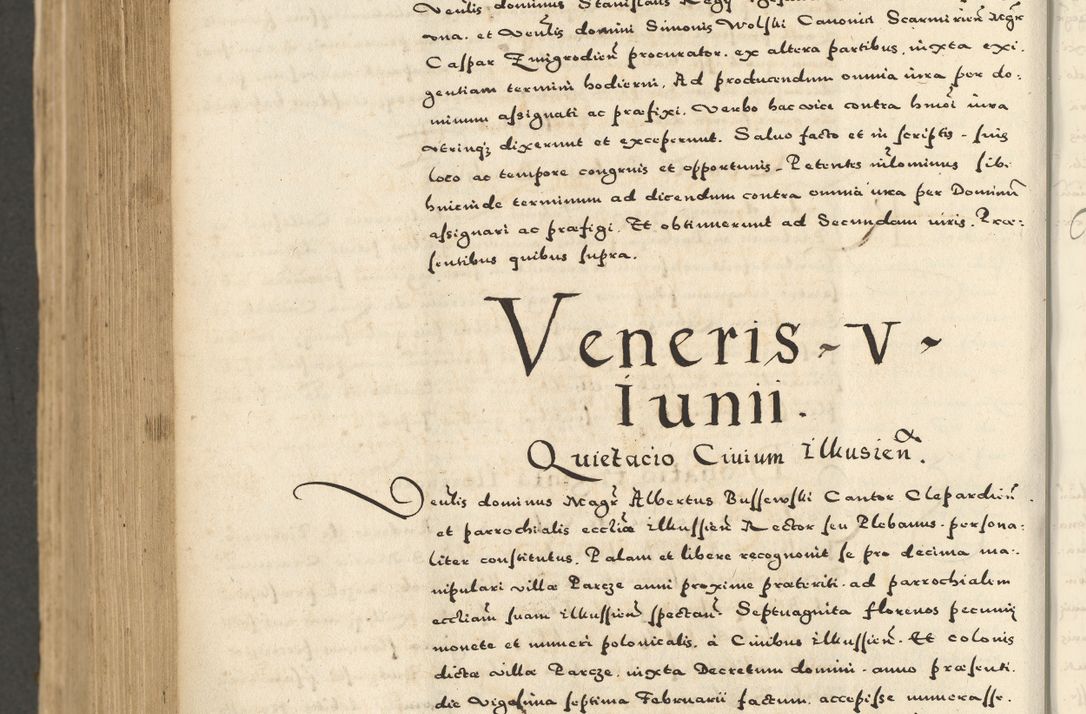 Venlis dominus Stanislaus
ona. et Venlis domini Simonis Wolski Canonici Scarmirien Mgr
Caspar Zmigrodien procurator. ex altera partibus, iuxta exi.
gentiam termini hodierni, Ad producendum omnia iura per do:
minum assignati ac præfixi. Verbo hac vice contra hmoi iura
vtrinq; dixerunt et exceperunt. Saluo facto et in scriptis - suis
loco ac tempore congruis et opportunis - Petentes nilominus sibi
huicinde terminum ad dicendum contra omnia iura per Dominu
assignari ac præfigi. Et obtinuerunt ad Secundam iuris. Præ:
sentibus quibus supra.
Veneris - V -
Iunii.
Quietacio Ciuium Illkusien.
Venlis dominus Magr Albertus Bussewski Cantor Clepardien
et parrochialis eccliæ illkussien Rector seu Plebanus - persona:
liter constitutus, Palam et libere recognouit se pro decima ma:
nipulari villæ Parcze anni proxime præteriti - ad parrochialem
eccliam suam illkussien spectan. Septuaginta florenos pecuniæ
monete et numeri polonicalis, à Ciuibus illkussien. Et colonis
dictæ villæ Parcze, iuxta Decretum domini - anno præsenti.
die Vigesima septima Februarii factum, accepisse numerasse.